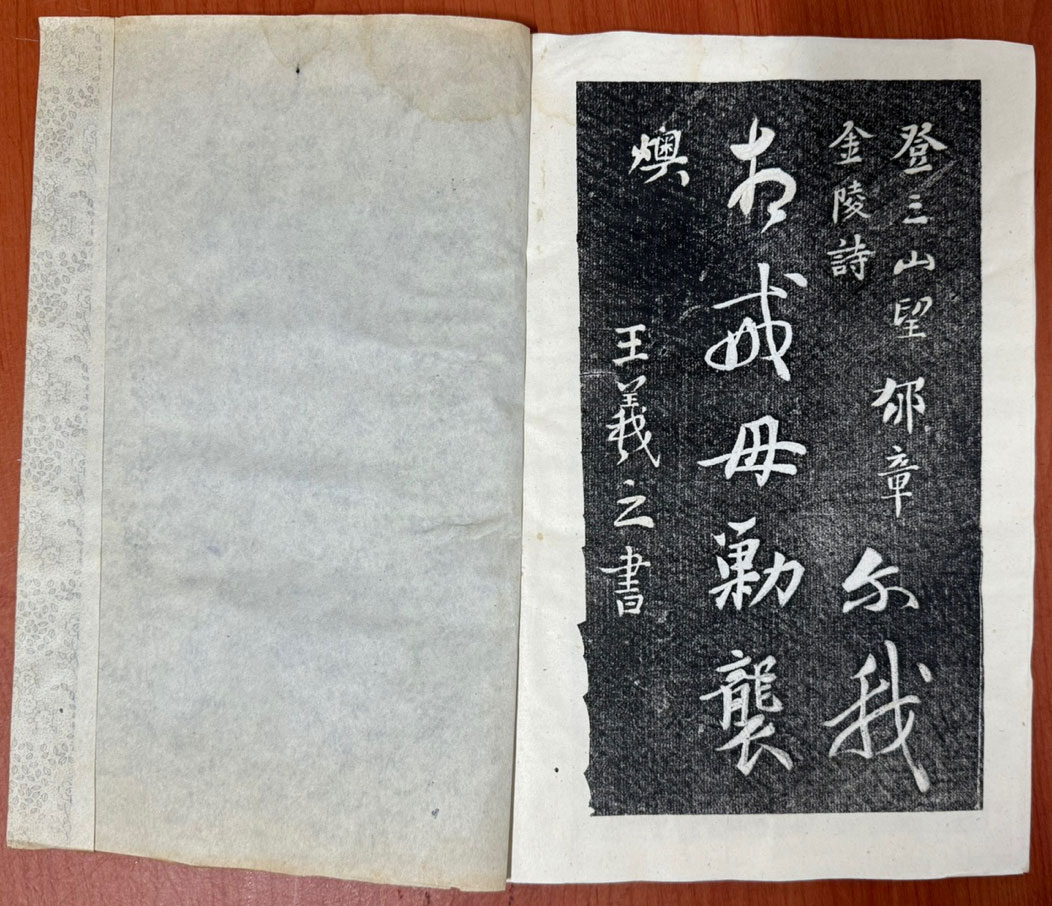 登三山望
金陵詩
章
尒我
相戒毋勦襲
燠
王羲之書